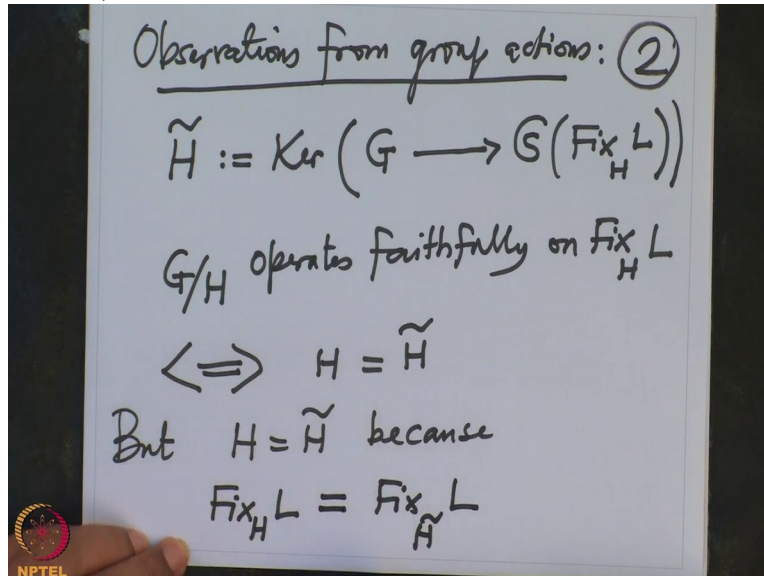 Observations from group actions: ②
H̃ := Ker ( G ⟶ 𝔖 ( Fix_H L ))
G/H operates faithfully on Fix_H L
<=> H = H̃
But H = H̃ because
Fix_H L = Fix_H̃ L
NPTEL